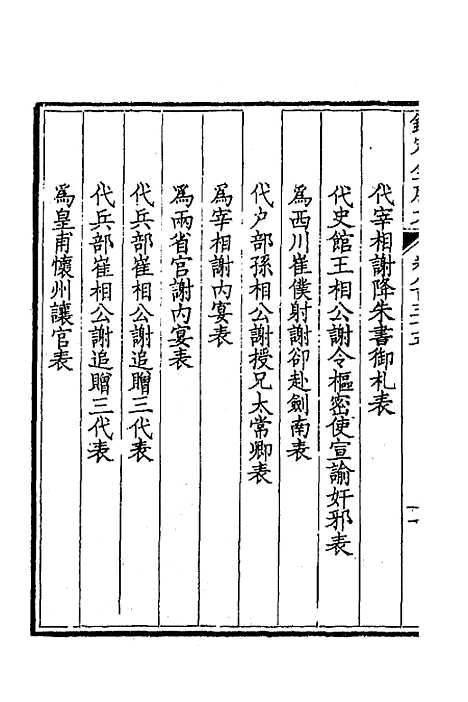 代宰相謝降朱書御札表
代史館王相公謝令樞密使宣諭奸邪表
為西川崔僕射謝卻赴劍南表
代户部孫相公謝授兄太常卿表
為宰相謝內宴表
為兩省官謝內宴表
代兵部崔相公謝追贈三代表
代兵部崔相公謝追贈三代表
為皇甫懷州讓官表